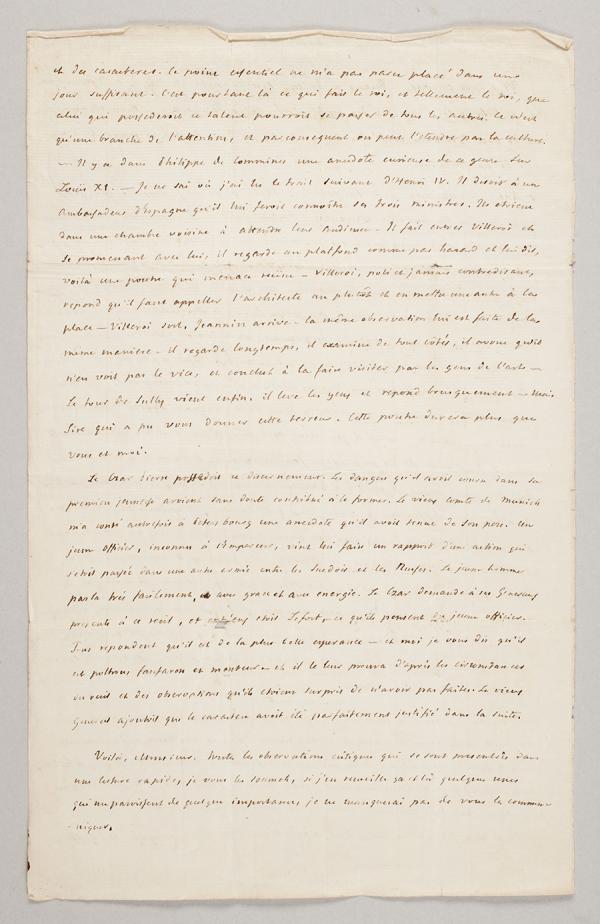 et des caracteres. Ce point essentiel ne m'a pas paru placé dans un
jour suffisant. C'est pourtant là ce qui fait le roi, et tellement le roi, que
celui qui possederoit ce talent pourroit se passer de tous les autres. Ce n'est
qu'une branche de l'attention, et par consequent on peut l'etendre par la culture.
— Il y a dans Philippe de Commines une anecdote curieuse de ce genre sur
Louis XI. — Je ne sai où j'ai lu le trait suivant d'Henri IV. Il disoit à un
Ambassadeur d'Espagne qu'il lui feroit connoître ses trois ministres. Ils etoient
dans une chambre voisine à attendre leur audience. Il fait entrer Villeroi et
se promenant avec lui, il regarde au platfond comme par hazard et lui dit,
voilà une poutre qui menace ruine — Villeroi, poli et jamais contredisant,
repond qu'il faut appeller l'architecte au plutôt et en mettre une autre à la
place — Villeroi sort, Jeannin arrive. la même observation lui est faite de la
meme maniere. il regarde longtemps, il examine de tout côtés, il avoue qu'il
n'en voit pas le vice, et conclut à la faire visiter par les gens de l'art —
Le tour de Sully vient enfin. il leve les yeux et repond brusquement — Mais
Sire qui a pu vous donner cette terreur. Cette poutre durera plus que
vous et moi.
Le Czar Pierre possedoit ce discernement. Les dangers qu'il avoit couru dans sa
premiere jeunesse avoient sans doute contribué à le former. Le vieux comte de Munich
m'a conté autrefois à Petersbourg une anecdote qu'il avoit tenue de son pere. Un
jeune officier, inconnu à l'Empereur, vint lui faire un rapport d'une action qui
s'etoit passée dans une autre armée entre les Suedois et les Russes. Le jeune homme
parla très facilement, avec grace et avec energie. Le Czar demande à ses Generaux
presents à ce recit, et etoit Lefort, ce qu'ils pensent du jeune officier.
Tous repondent qu'il est de la plus belle esperance — et moi je vous dis qu'il
est poltron fanfaron et menteur — et il le leur prouva d'après les circonstances
du recit et des observations qu'ils etoient surpris de n'avoir pas faites. Le vieux
General ajoutoit que le caractere avoit été parfaitement justifié dans la suite.
Voilà, Monsieur, toutes les observations critiques qui se sont presentées dans
une lecture rapide, je vous les soumets, si j'en recueille ça et là quelques unes
qui me paroissent de quelque importance, je ne manquerai pas de vous les commu-
-niquer.